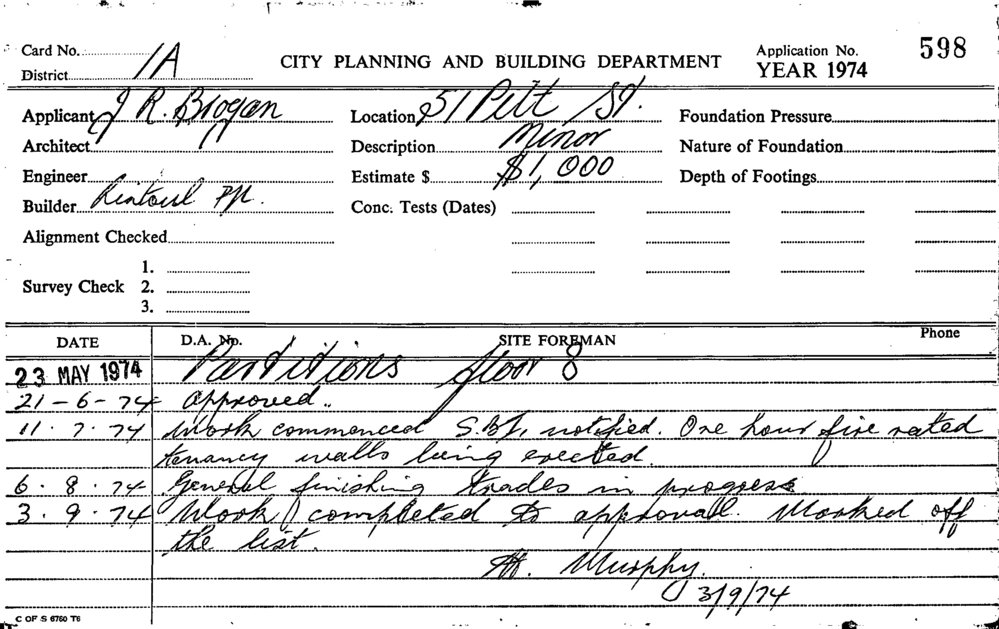 Card No. 1A
District
CITY PLANNING AND BUILDING DEPARTMENT
Application No. 598
YEAR 1974
Applicant J R. Brogan
Location 51 Pitt St.
Foundation Pressure
Architect
Description Minor
Nature of Foundation
Engineer
Estimate $ $1,000
Depth of Footings
Builder Rintoul P/L.
Conc. Tests (Dates)
Alignment Checked
Survey Check
1.
2.
3.
DATE D.A. No. SITE FOREMAN Phone
23 MAY 1974 Partitions floor 8
21-6-74 Approved.
11.7.74 Work commenced notified. One hour fire rated
tenancy walls being erected.
6.8.74 General finishing trades in progress
3.9.74 Work completed to approval. Marked off
the list.
Murphy.
3/9/74
C OF S 6750 T6